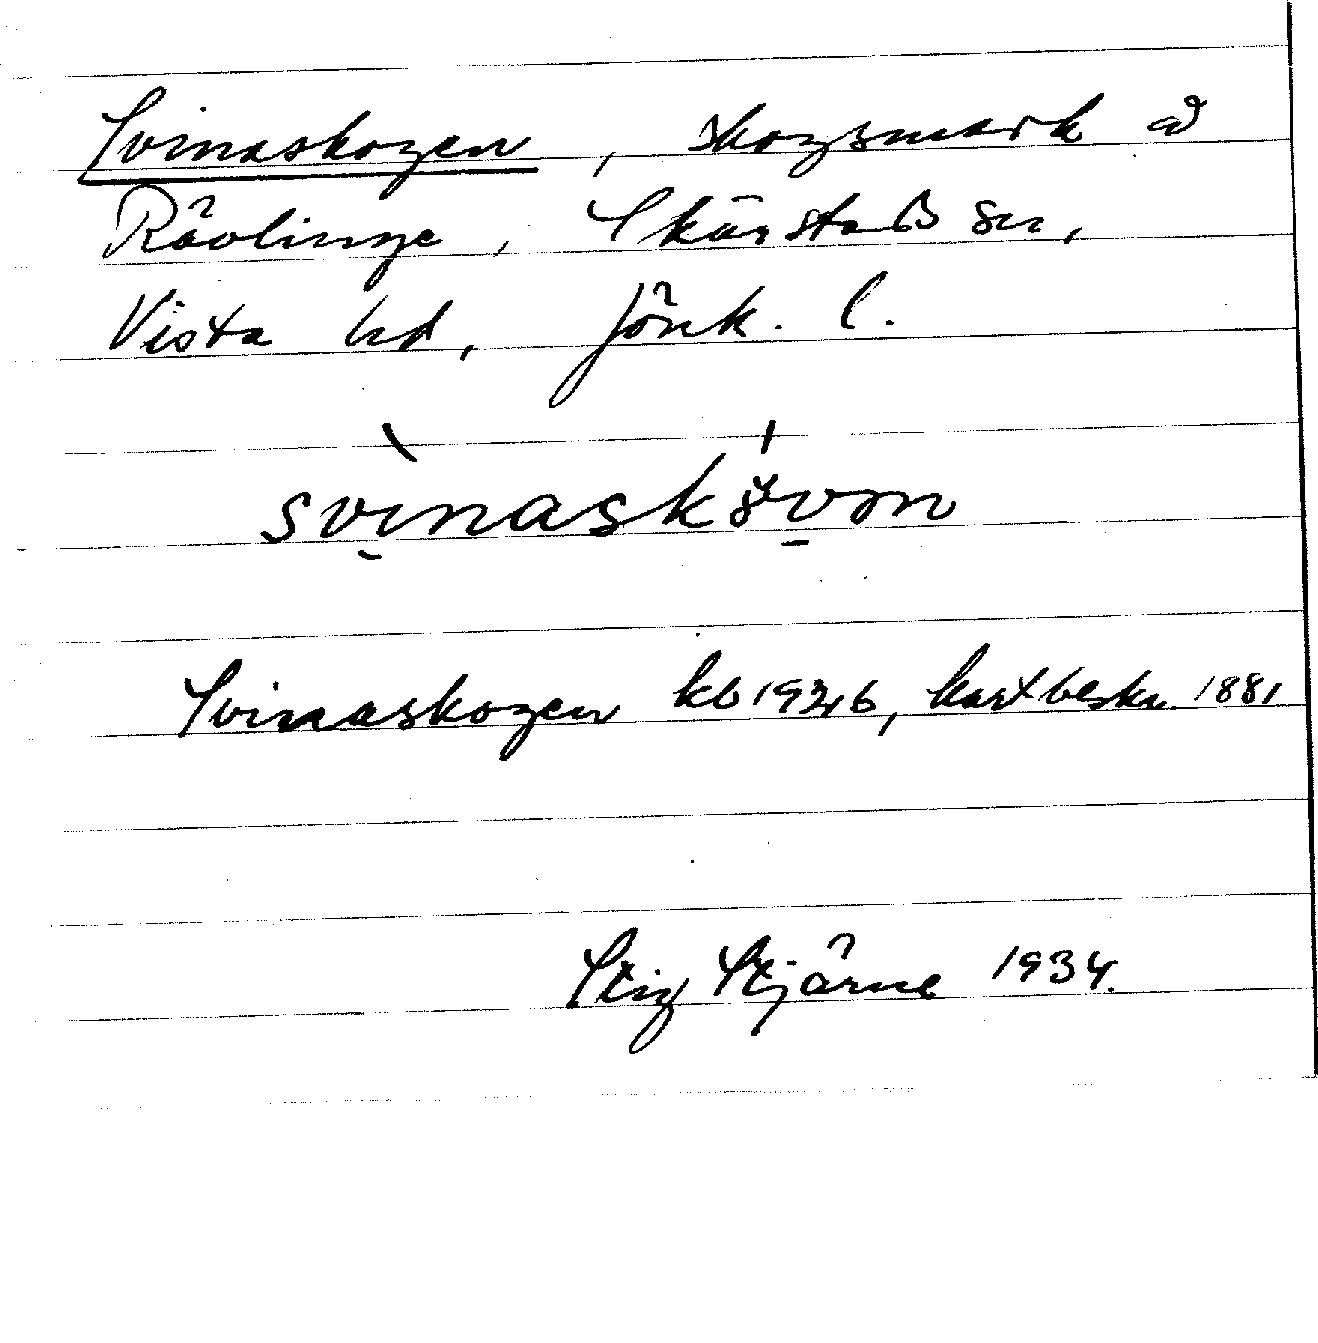 Svinaskogen, skogsmark å
Rävlinge, Skärstads sn,
Vista hd, Jönk. l.
Svinaskogen kb 1926, kartbeskr. 1881
Stig Stjärne 1934.